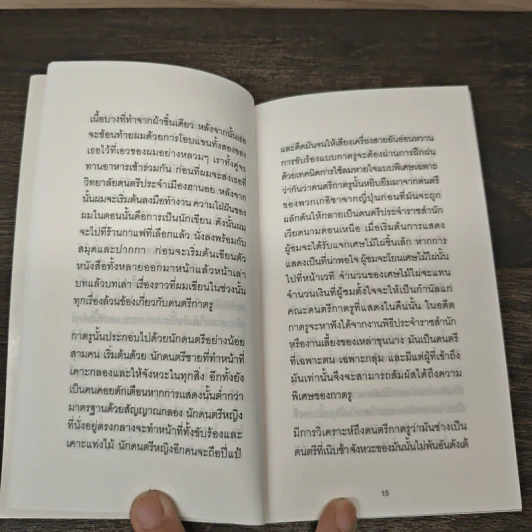 เนื้อบางที่ทำจากผ้าชิ้นเดียว หลังจากนั้นเธอ
จะซ้อนท้ายผมด้วยการโอบแขนทั้งสองของ
เธอไว้ที่เอวของผมอย่างหลวมๆ เราทั้งคู่จะ
ทานอาหารเช้าร่วมกัน ก่อนที่ผมจะส่งเธอที่
วิทยาลัยดนตรีประจำเมืองฮานอย หลังจาก
นั้นผมจะเริ่มต้นลงมือทำงาน ความใฝ่ฝันของ
ผมในตอนนั้นคือการเป็นนักเขียน ดังนั้นผม
จะไปที่ร้านกาแฟที่เลือกแล้ว นั่งลงพร้อมกับ
สมุดและปากกา ก่อนจะเริ่มต้นเขียนตัว
หนังสือทั้งหลายออกมาหน้าแล้วหน้าเล่า
บทแล้วบทเล่า เรื่องราวที่ผมเขียนในช่วงนั้น
ทุกเรื่องล้วนข้องเกี่ยวกับดนตรีกาตรู
กาตรูนั้นประกอบไปด้วยนักดนตรีอย่างน้อย
สามคน เริ่มต้นด้วย นักดนตรีชายที่ทำหน้าที่
เคาะกลองและให้จังหวะในทุกสิ่ง อีกทั้งยัง
เป็นคนคอยตักเตือนหากการแสดงนั้นต่ำกว่า
มาตรฐานด้วยสัญญาณกลอง นักดนตรีหญิง
ที่นั่งอยู่ตรงกลางจะทำหน้าที่ทั้งขับร้องและ
เคาะแท่งไม้ นักดนตรีหญิงอีกคนจะถือปี่แป้
และดีดมันจนให้เสียงเครื่องสายอันอ่อนหวาน
การขับร้องแบบกาตรูจะต้องผ่านการฝึกฝน
ด้วยเทคนิคการใช้ลมหายใจแบบพิเศษเฉพาะ
ว่ากันว่าดนตรีกาตรูนั้นหยิบยืมมาจากดนตรี
ของพวกเกอิชาจากญี่ปุ่นก่อนที่มันจะถูก
ผลักดันให้กลายเป็นดนตรีประจำราชสำนัก
เวียดนามตอนเหนือ เมื่อเริ่มต้นการแสดง
ผู้ชมจะได้รับแจกเศษไม้ไผ่ชิ้นเล็ก หากการ
แสดงเป็นที่น่าพอใจ ผู้ชมจะโยนเศษไม้ไผ่นั้น
ไปที่หน้าเวที จำนวนของเศษไม้ไผ่จะแทน
จำนวนเงินที่ผู้ชมตั้งใจจะให้เป็นกำนัลแก่
คณะดนตรีกาตรูที่แสดงในคืนนั้น ในอดีต
กาตรูจะหาฟังได้จากงานพิธีประจำราชสำนัก
หรืองานเลี้ยงของเหล่าขุนนาง มันเป็นดนตรี
ที่เฉพาะตน เฉพาะกลุ่ม และมีแต่ผู้ที่เข้าถึง
มันเท่านั้นจึงจะสามารถสัมผัสได้ถึงความ
พิเศษของกาตรู
มีการวิเคราะห์ถึงดนตรีกาตรูว่ามันช่างเป็น
ดนตรีที่เนิบช้า จังหวะของมันนั้นไม่พ้นอันดังเต้
15